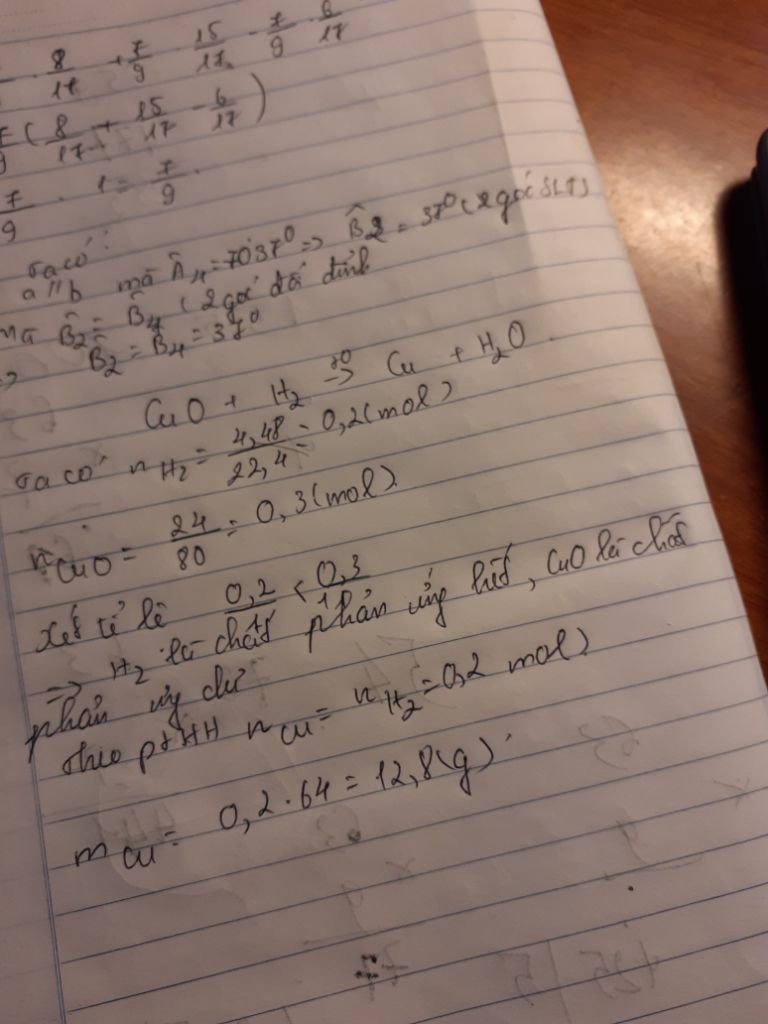 . 8/17 + 7/9 . 15/17 - 7/9 . 6/17
( 8/17 + 15/17 - 6/17 )
7/9 . 1 = 7/9 .
Ta có :
a // b mà Â₄ = 37⁰ => B̂₂ = 37⁰ ( 2 góc SLT)
mà B̂₂ = B̂₄ ( 2 góc đđ đỉnh
=> B̂₂ = B̂₄ = 37⁰
CuO + H₂ →(t⁰) Cu + H₂O .
Ta có n H₂ = 4,48/22,4 = 0,2 (mol)
n CuO = 24/80 = 0,3 (mol)
xét tỉ lệ 0,2/1 < 0,3/1
=> H₂ là chất phản ứng hết, CuO là chất
phản ứng dư
Theo ptHH n Cu = n H₂ = 0,2 mol)
m Cu = 0,2 . 64 = 12,8 (g)